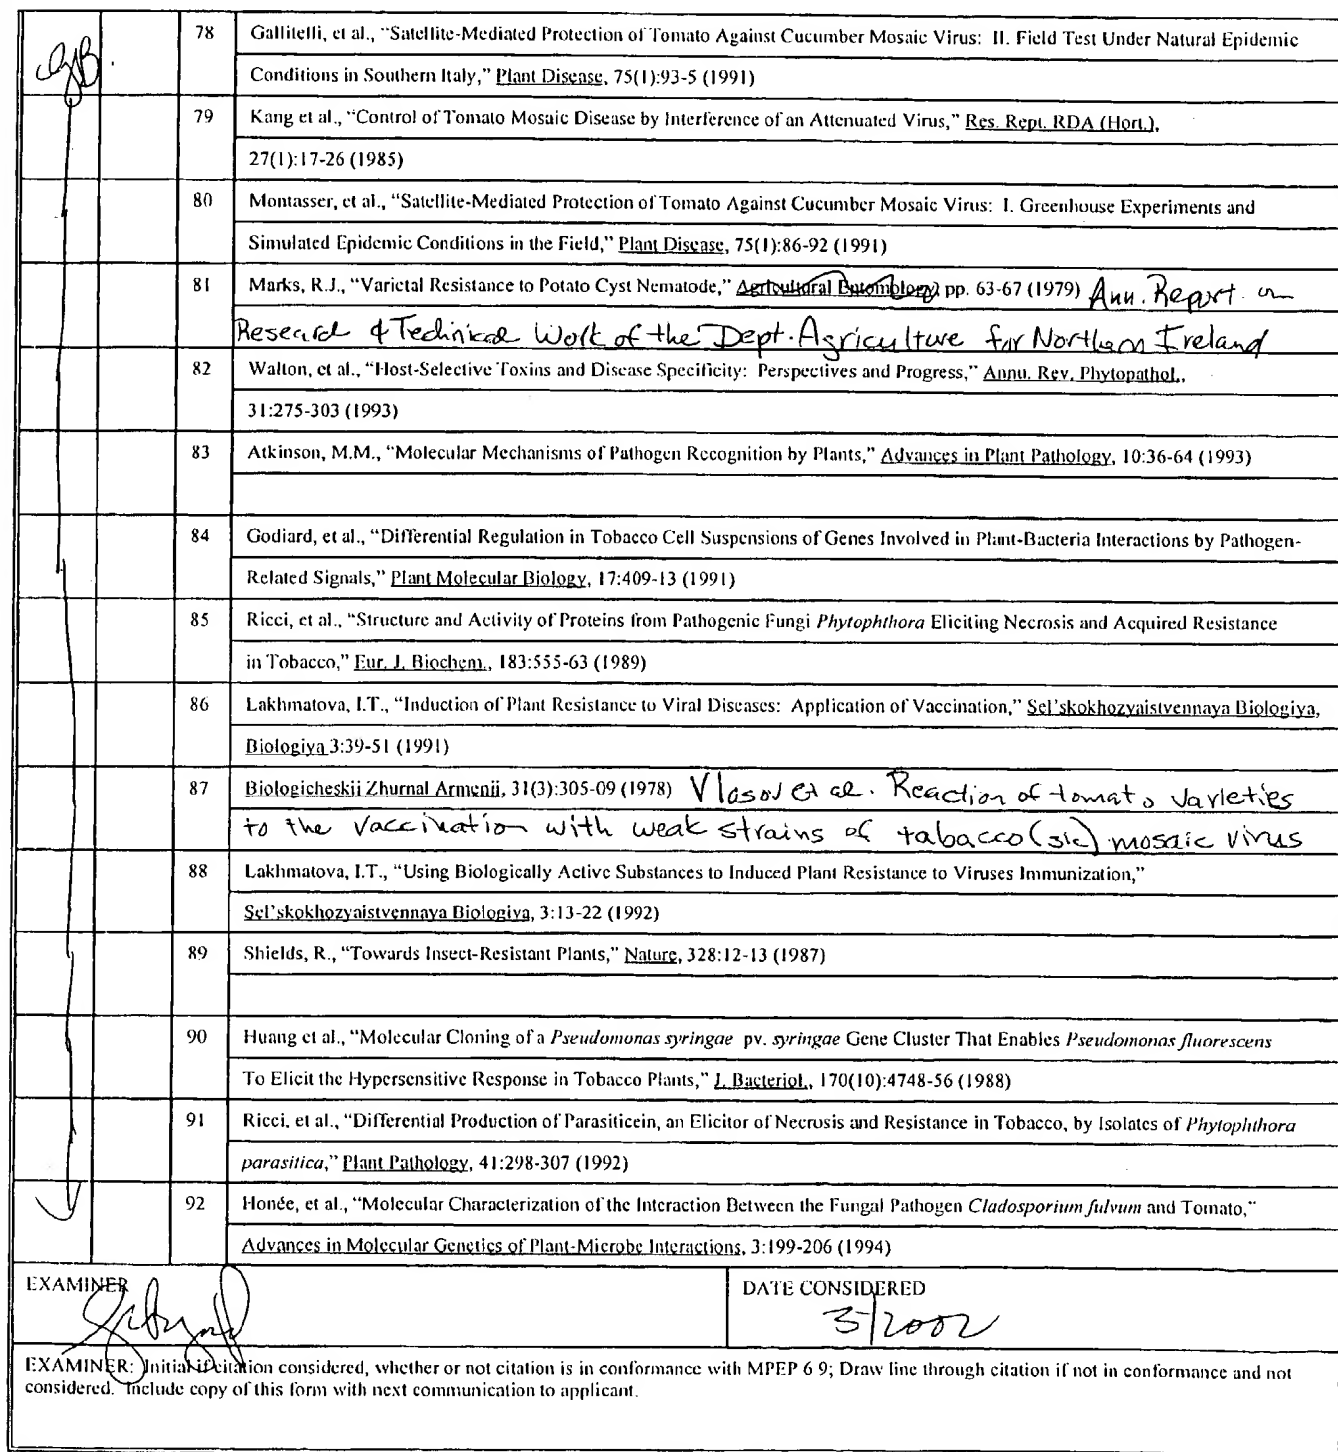 78 Gallitelli, et al., "Satellite-Mediated Protection of Tomato Against Cucumber Mosaic Virus: II. Field Test Under Natural Epidemic
Conditions in Southern Italy," Plant Disease, 75(1):93-5 (1991)
79 Kang et al., "Control of Tomato Mosaic Disease by Interference of an Attenuated Virus," Res. Rept. RDA (Hort.),
27(1):17-26 (1985)
80 Montasser, et al., "Satellite-Mediated Protection of Tomato Against Cucumber Mosaic Virus: I. Greenhouse Experiments and
Simulated Epidemic Conditions in the Field," Plant Disease, 75(1):86-92 (1991)
81 Marks, R.J., "Varietal Resistance to Potato Cyst Nematode," Agricultural Entomology, pp. 63-67 (1979) Ann. Report on
Research & Technical Work of the Dept. Agriculture for Northern Ireland
82 Walton, et al., "Host-Selective Toxins and Disease Specificity: Perspectives and Progress," Annu. Rev. Phytopathol.,
31:275-303 (1993)
83 Atkinson, M.M., "Molecular Mechanisms of Pathogen Recognition by Plants," Advances in Plant Pathology, 10:36-64 (1993)
84 Godiard, et al., "Differential Regulation in Tobacco Cell Suspensions of Genes Involved in Plant-Bacteria Interactions by Pathogen-
Related Signals," Plant Molecular Biology, 17:409-13 (1991)
85 Ricci, et al., "Structure and Activity of Proteins from Pathogenic Fungi Phytophthora Eliciting Necrosis and Acquired Resistance
in Tobacco," Eur. J. Biochem., 183:555-63 (1989)
86 Lakhmatova, I.T., "Induction of Plant Resistance to Viral Diseases: Application of Vaccination," Sel'skokhozyaistvennaya Biologiya,
Biologiya 3:39-51 (1991)
87 Biologicheskii Zhurnal Armenii, 31(3):305-09 (1978) Vlasov et al. Reaction of tomato varieties
to the vaccination with weak strains of tabacco (sic) mosaic virus
88 Lakhmatova, I.T., "Using Biologically Active Substances to Induced Plant Resistance to Viruses Immunization,"
Sel'skokhozyaistvennaya Biologiya, 3:13-22 (1992)
89 Shields, R., "Towards Insect-Resistant Plants," Nature, 328:12-13 (1987)
90 Huang et al., "Molecular Cloning of a Pseudomonas syringae pv. syringae Gene Cluster That Enables Pseudomonas fluorescens
To Elicit the Hypersensitive Response in Tobacco Plants," J. Bacteriol., 170(10):4748-56 (1988)
91 Ricci, et al., "Differential Production of Parasiticein, an Elicitor of Necrosis and Resistance in Tobacco, by Isolates of Phytophthora
parasitica," Plant Pathology, 41:298-307 (1992)
92 Honée, et al., "Molecular Characterization of the Interaction Between the Fungal Pathogen Cladosporium fulvum and Tomato,"
Advances in Molecular Genetics of Plant-Microbe Interactions, 3:199-206 (1994)
EXAMINER DATE CONSIDERED
3/2002
EXAMINER: Initial if citation considered, whether or not citation is in conformance with MPEP 6 9; Draw line through citation if not in conformance and not
considered. Include copy of this form with next communication to applicant.